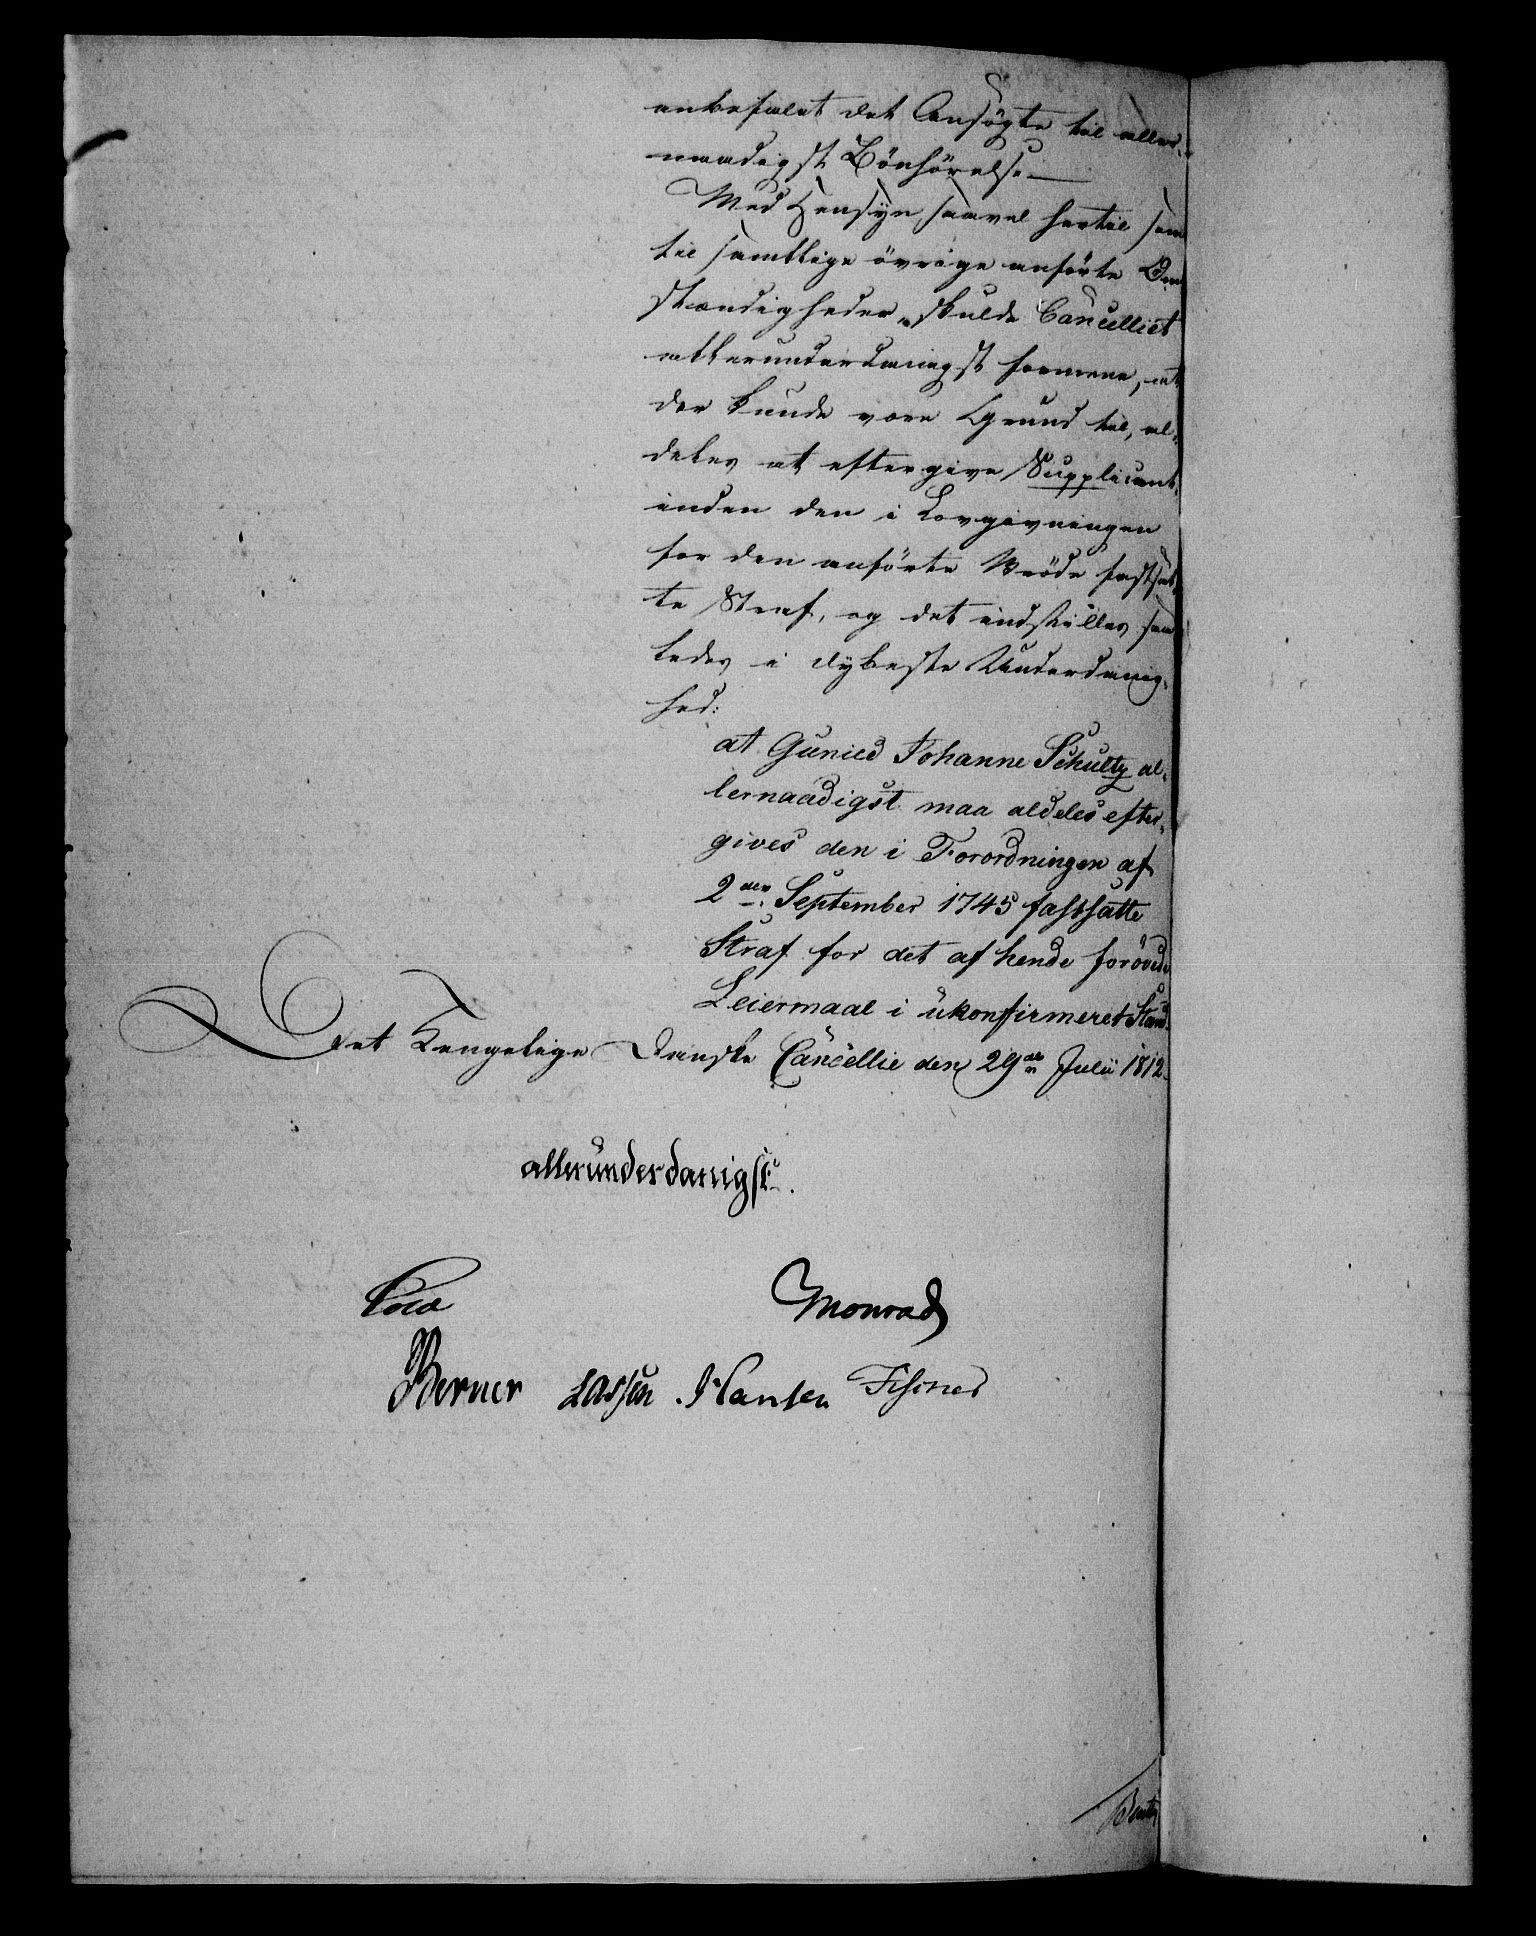 anbefalet det Ansøgte til aller-
naadigst Bönhörelse. —
Med Hensyn saavel hertil som
til samtlige övrige anförte Om
stændigheder, skulde Cancelliet
allerunderdanigst formene, at
der kunde være Grund til, al-
deles at eftergive Supplicant-
inden den i Lovgivningen
for den anförte Bröde fastsat-
te Straf, og det indstilles saa
ledes i dybeste Underdanig-
hed:
at Gunild Johanne Schultz al-
lernaadigst maa aldeles efter-
gives den i Forordningen af
2den September 1745 fastsatte
Straf for det af hende forövede
Leiermaal i ukonfirmeret Stand.
Det Kongelige Danske Cancellie den 29de Julii 1812.
allerunderdanigst.
Cold Monrad
Berner Lassen Hansen